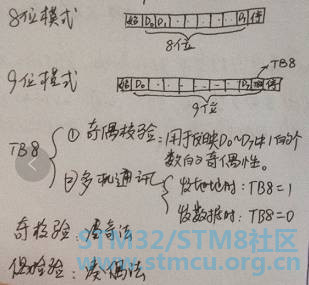 8位模式
始 D₀ D₁ · · · · · D₇ 停
8位
TB8
9位模式
始 D₀ D₇ 停
9位
TB8
① 奇偶校验:用于反映D₀~D₇中1的个
数的奇偶性。
②多机通讯
发地址时:TB8=1
发数据时:TB8=0
奇校验:凑奇法
偶检验:凑偶法
STM32/STM8社区
www.stmcu.org.cn